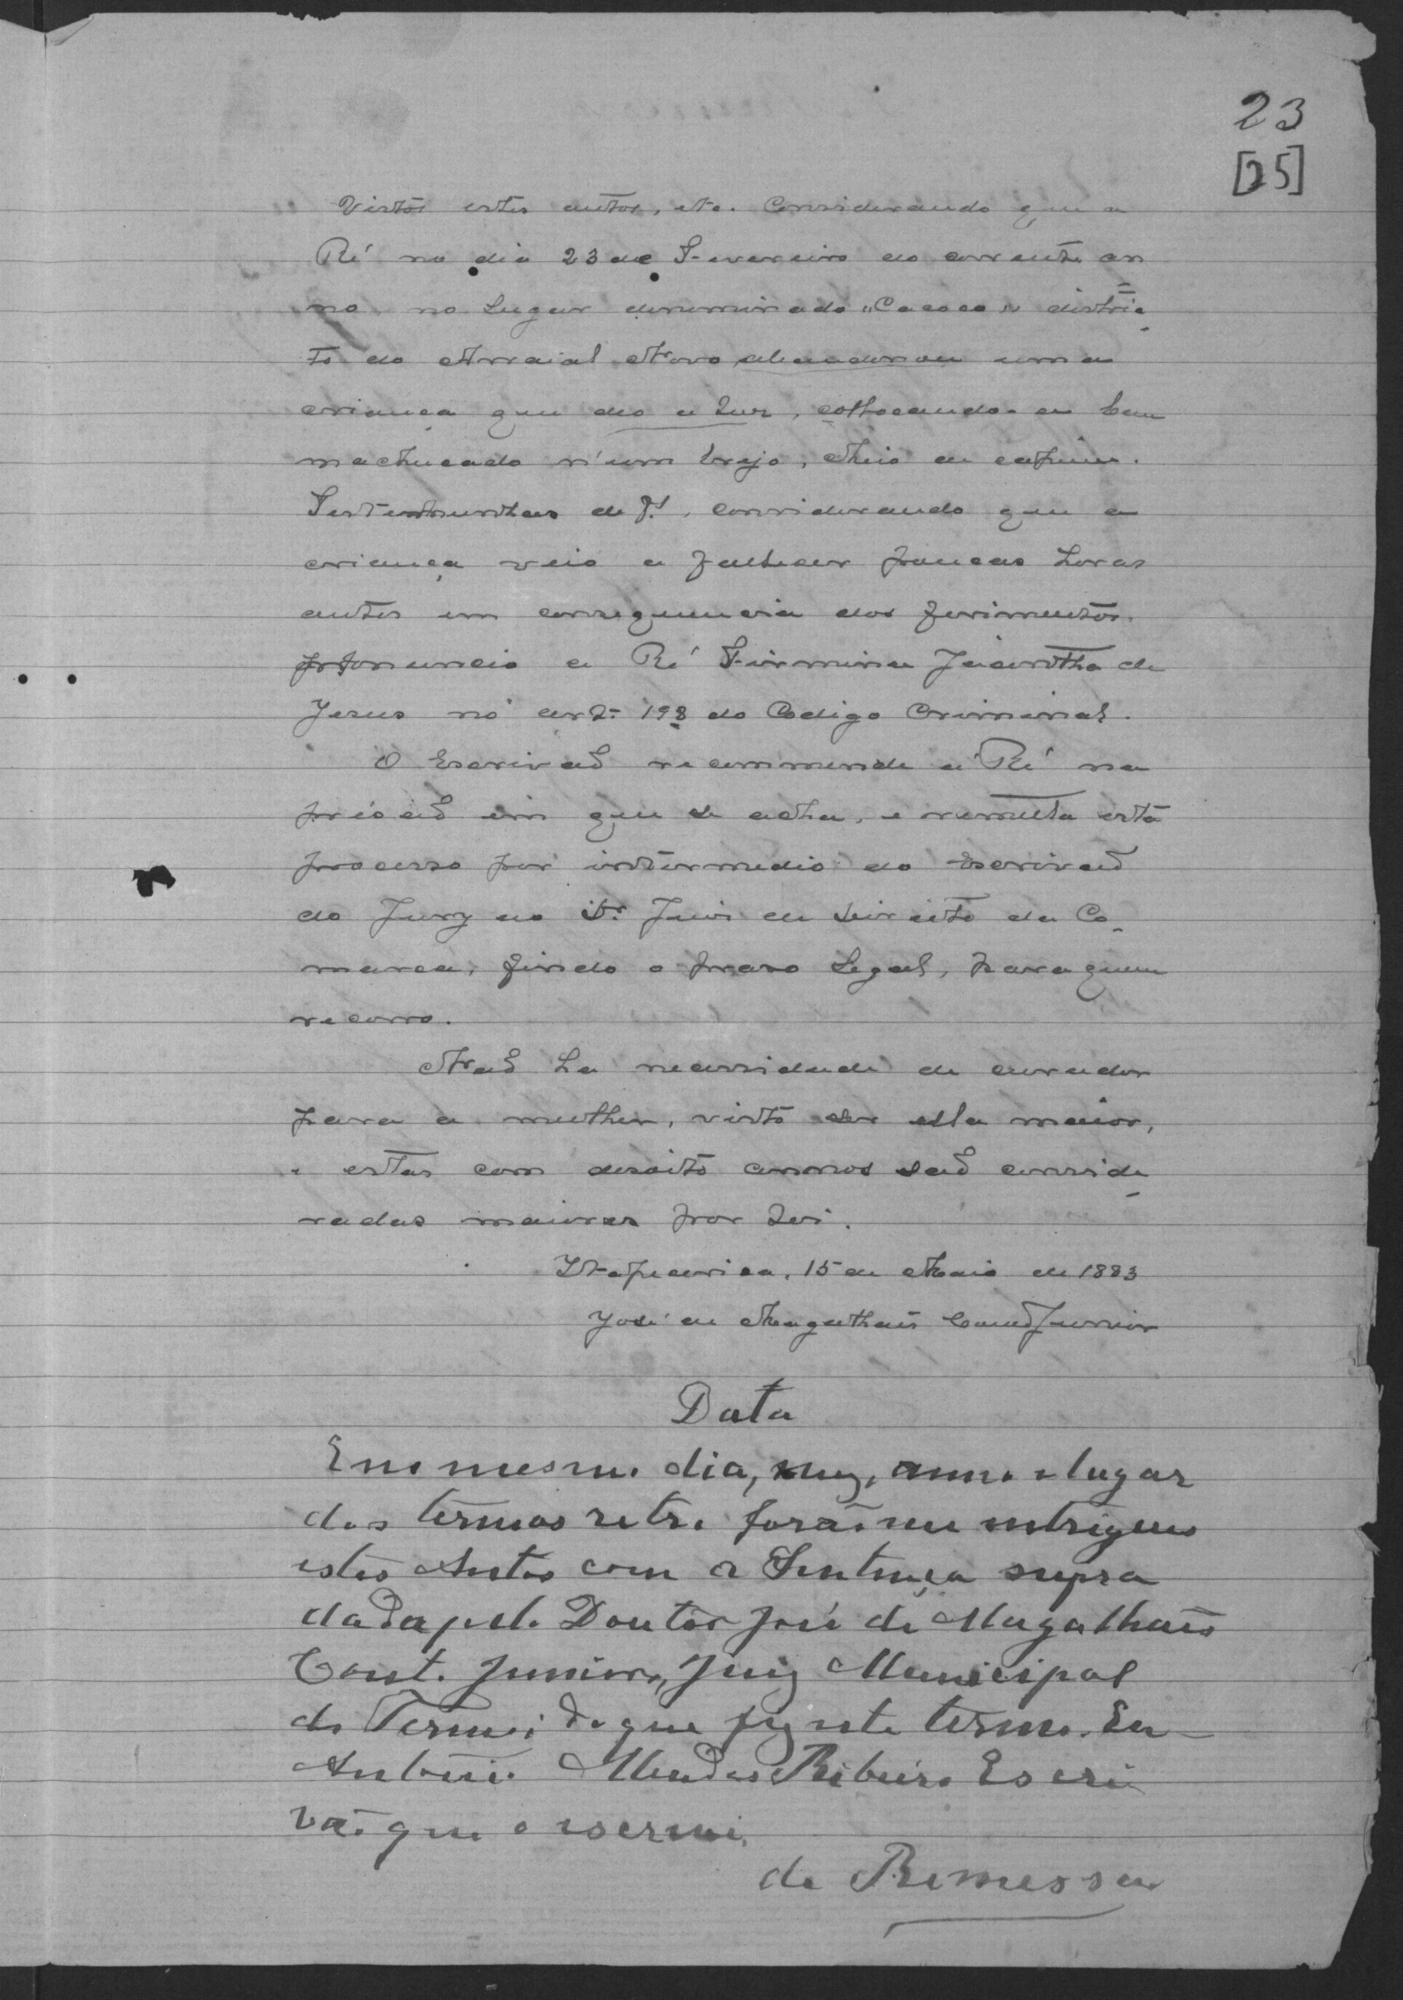 23
[25]
Vistos estes autos, etc. Considerando que a
Ré no dia 23 de Fevereiro do corrente an
no no lugar denominado "Cacoco" distric
to do Arraial Novo abandonou uma
criança que deo a luz, collocando-a bem
machucado n'um brejo, cheio de capim.
Testemunhas de f. , considerando que a
criança veio a fallecer poucas horas
antes em consequencia dos ferimentos.
pronuncio a Ré Firmina Jacintha de
Jesus no art. 198 do Codigo Criminal.
O Escrivaõ recommende a Ré na
prisaõ em que se acha, e remetta este
processo por intermedio do Escrivaõ
do Jury ao Dr. Juis de Direito da Co
marca, findo o praso legal, para quem
recorro.
Naõ ha necessidade de curador
para a mulher, visto ser ella maior,
e estas com desoito annos saõ conside
radas maiores por Lei.
Itapecerica, 15 de Maio de 1883
José de Magalhães Couto Junior
Data
Em o mesmo dia, mez, anno e lugar
dos termos retro foraõ me entregues
estes Autos com a Sentença supra
dada pelo Doutor José de Magalhães
Couto Junior, Juiz Municipal
do Termo; do que fiz este termo. Eu
Antonio Mendes Ribeiro Escri
vaõ que o escrevi.
de Remessa